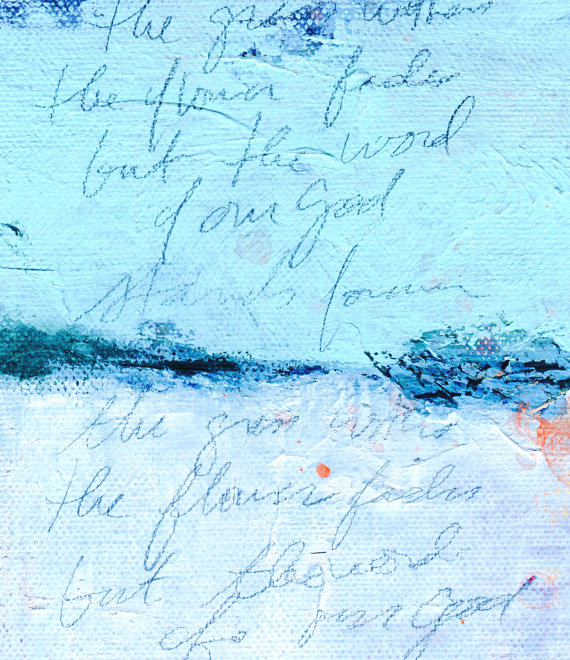 the grass withers
the flower fades
but the word
of our God
stands forever
the grass withers
the flower fades
but the word
of our God